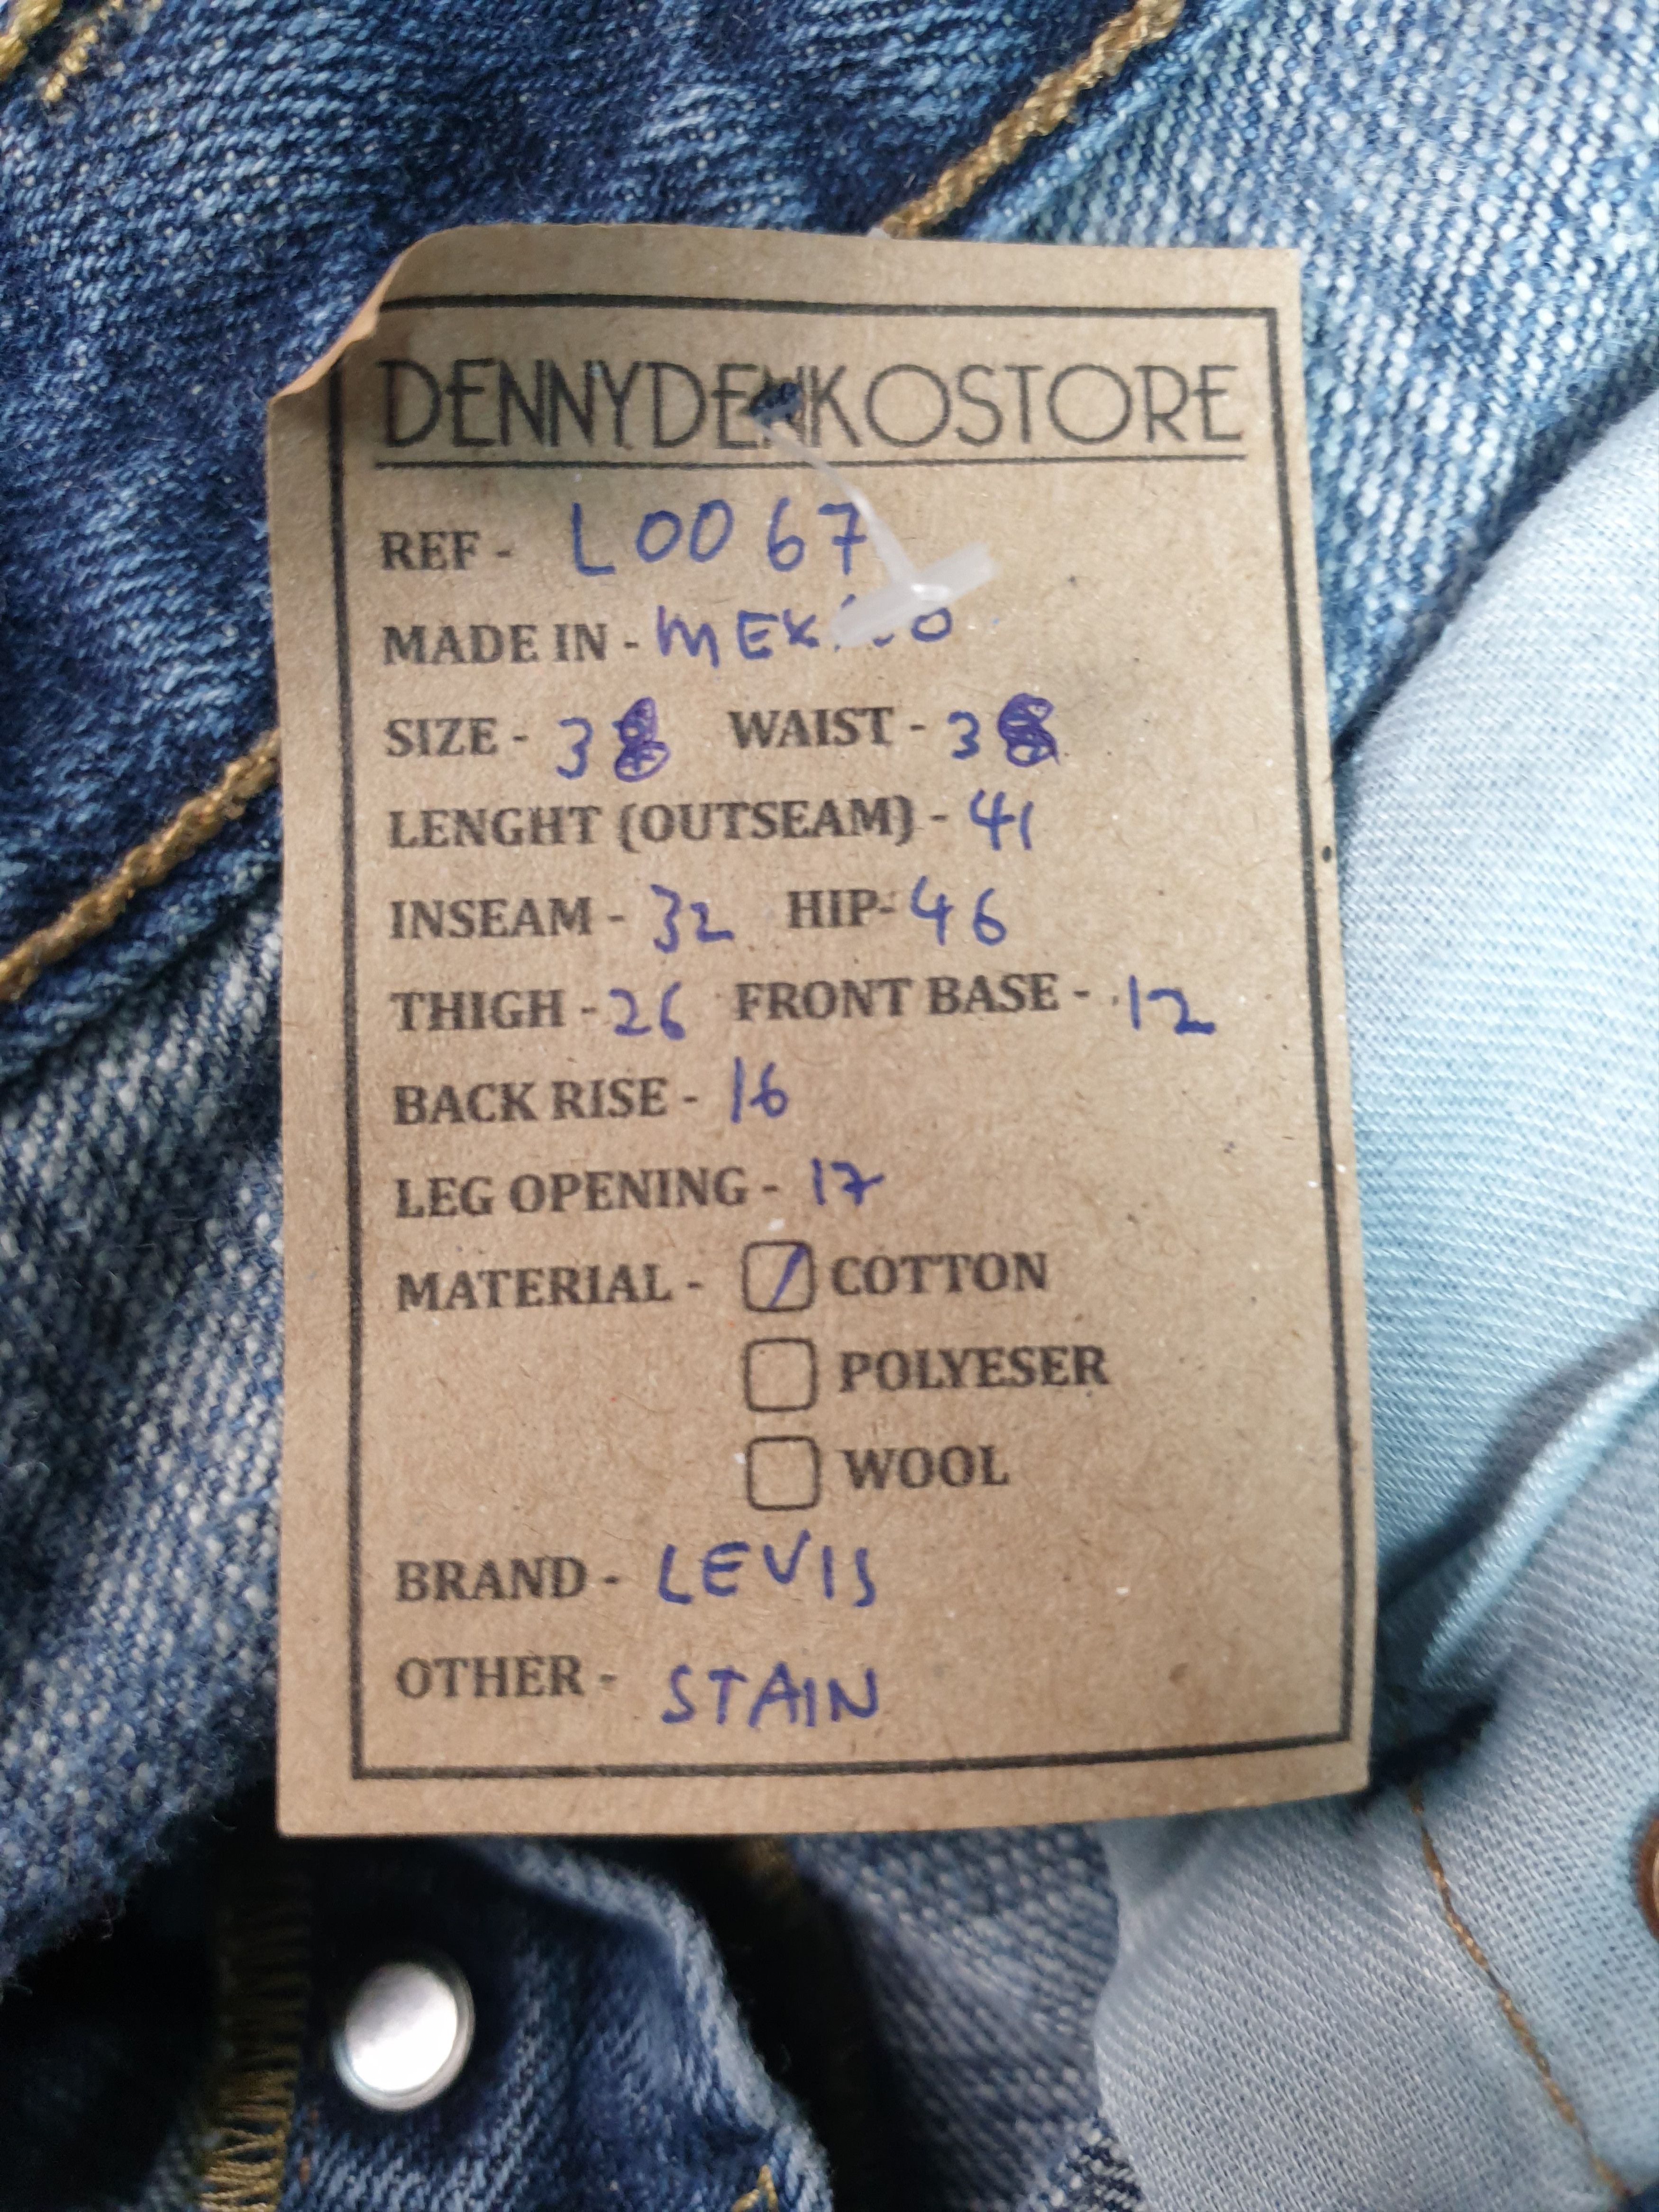 DENNYDENKOSTORE
REF - L0067
MADE IN - MEXICO
SIZE - 38 WAIST - 38
LENGHT (OUTSEAM) - 41
INSEAM - 32 HIP- 46
THIGH - 26 FRONT BASE - 12
BACK RISE - 16
LEG OPENING - 17
MATERIAL - COTTON
POLYESER
WOOL
BRAND - LEVIS
OTHER - STAIN